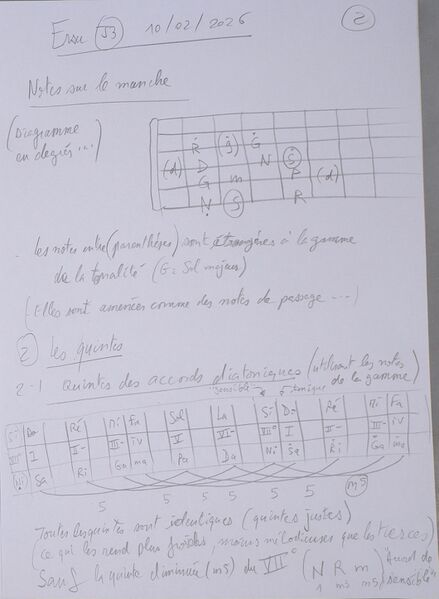 53 10/02/2026 2
Notes sur le manche
(Diagramme en degrés ...)
R (g) G
(d) D N S
G m P (d)
N S R
- Les notes entre (parenthèses) sont étrangères à la gamme
de la tonalité (G = Sol majeur)
(Elles sont amenées comme des notes de passage ...)
2 Les quintes
2-1 Quintes des accords diatoniques (utilisant les notes de la gamme)
sensible tonique
Si Do Ré Mi Fa Sol La Si Do Ré Mi Fa
VII° I II- III- IV V VI- VII° I II- III- IV
Ni Sa Ri Ga ma Pa Da Ni Sa Ri Ga ma
5 5 5 5 5 5 m5
Toutes les quintes sont identiques (quintes justes)
(ce qui les rend plus froides, moins mélodieuses que les tierces)
Sauf la quinte diminuée (m5) du VII° (N R m "Accord de sensible"
1 m3 m5)